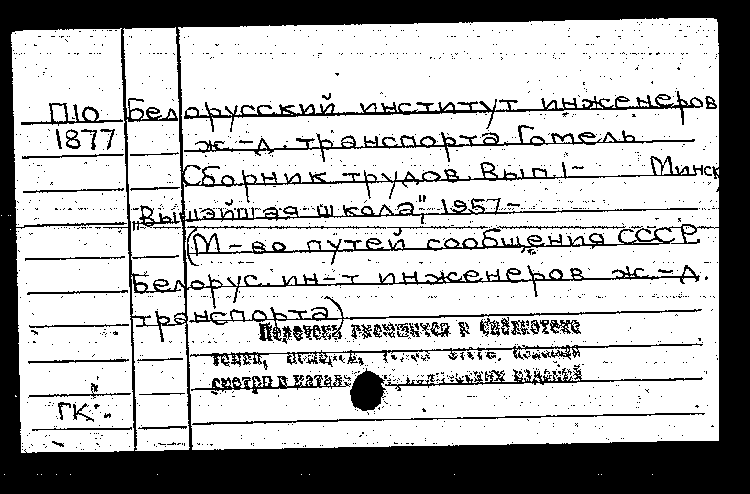 П10 Белорусский институт инженеров
1877 ж.-д. транспорта. Гомель
Сборник трудов. Вып. 1- Минск
"Вышэйшая школа", 1957-
(М-во путей сообщения СССР
Белорус. ин-т инженеров ж.-д.
транспорта)
Перечень имеющихся в библиотеке
смотри в изданий
ГК